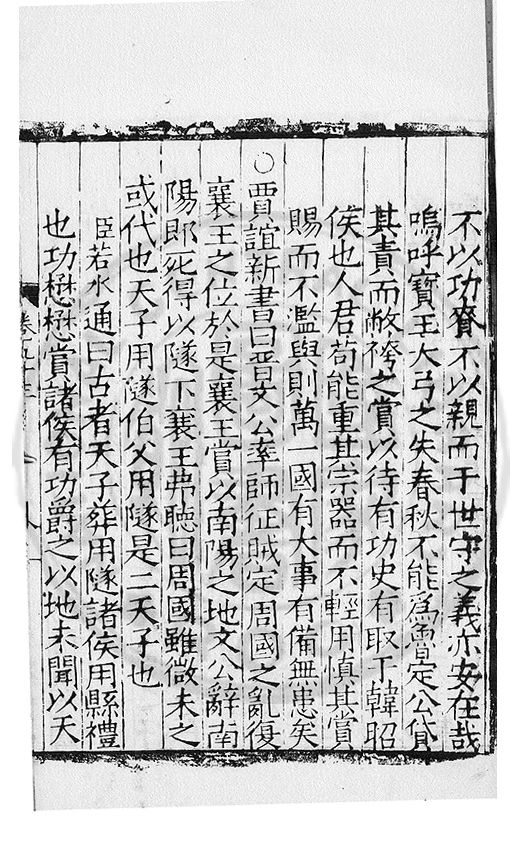 不以功賚不以親而于世守之義亦安在哉
嗚呼寶玉大弓之失春秋不能爲魯定公貸
其責而敝袴之賞以待有功史有取于韓昭
侯也人君苟能重其宗器而不輕用慎其賞
賜而不濫與則萬一國有大事有備無患矣
○賈誼新書曰晋文公率師征賊定周國之亂復
襄王之位於是襄王賞以南陽之地文公辭南
陽即死得以隧下襄王弗聽曰周國雖微未之
或代也天子用隧伯父用隧是二天子也
臣若水通曰古者天子葬用隧諸侯用縣禮
也功懋懋賞諸侯有功爵之以地未聞以天